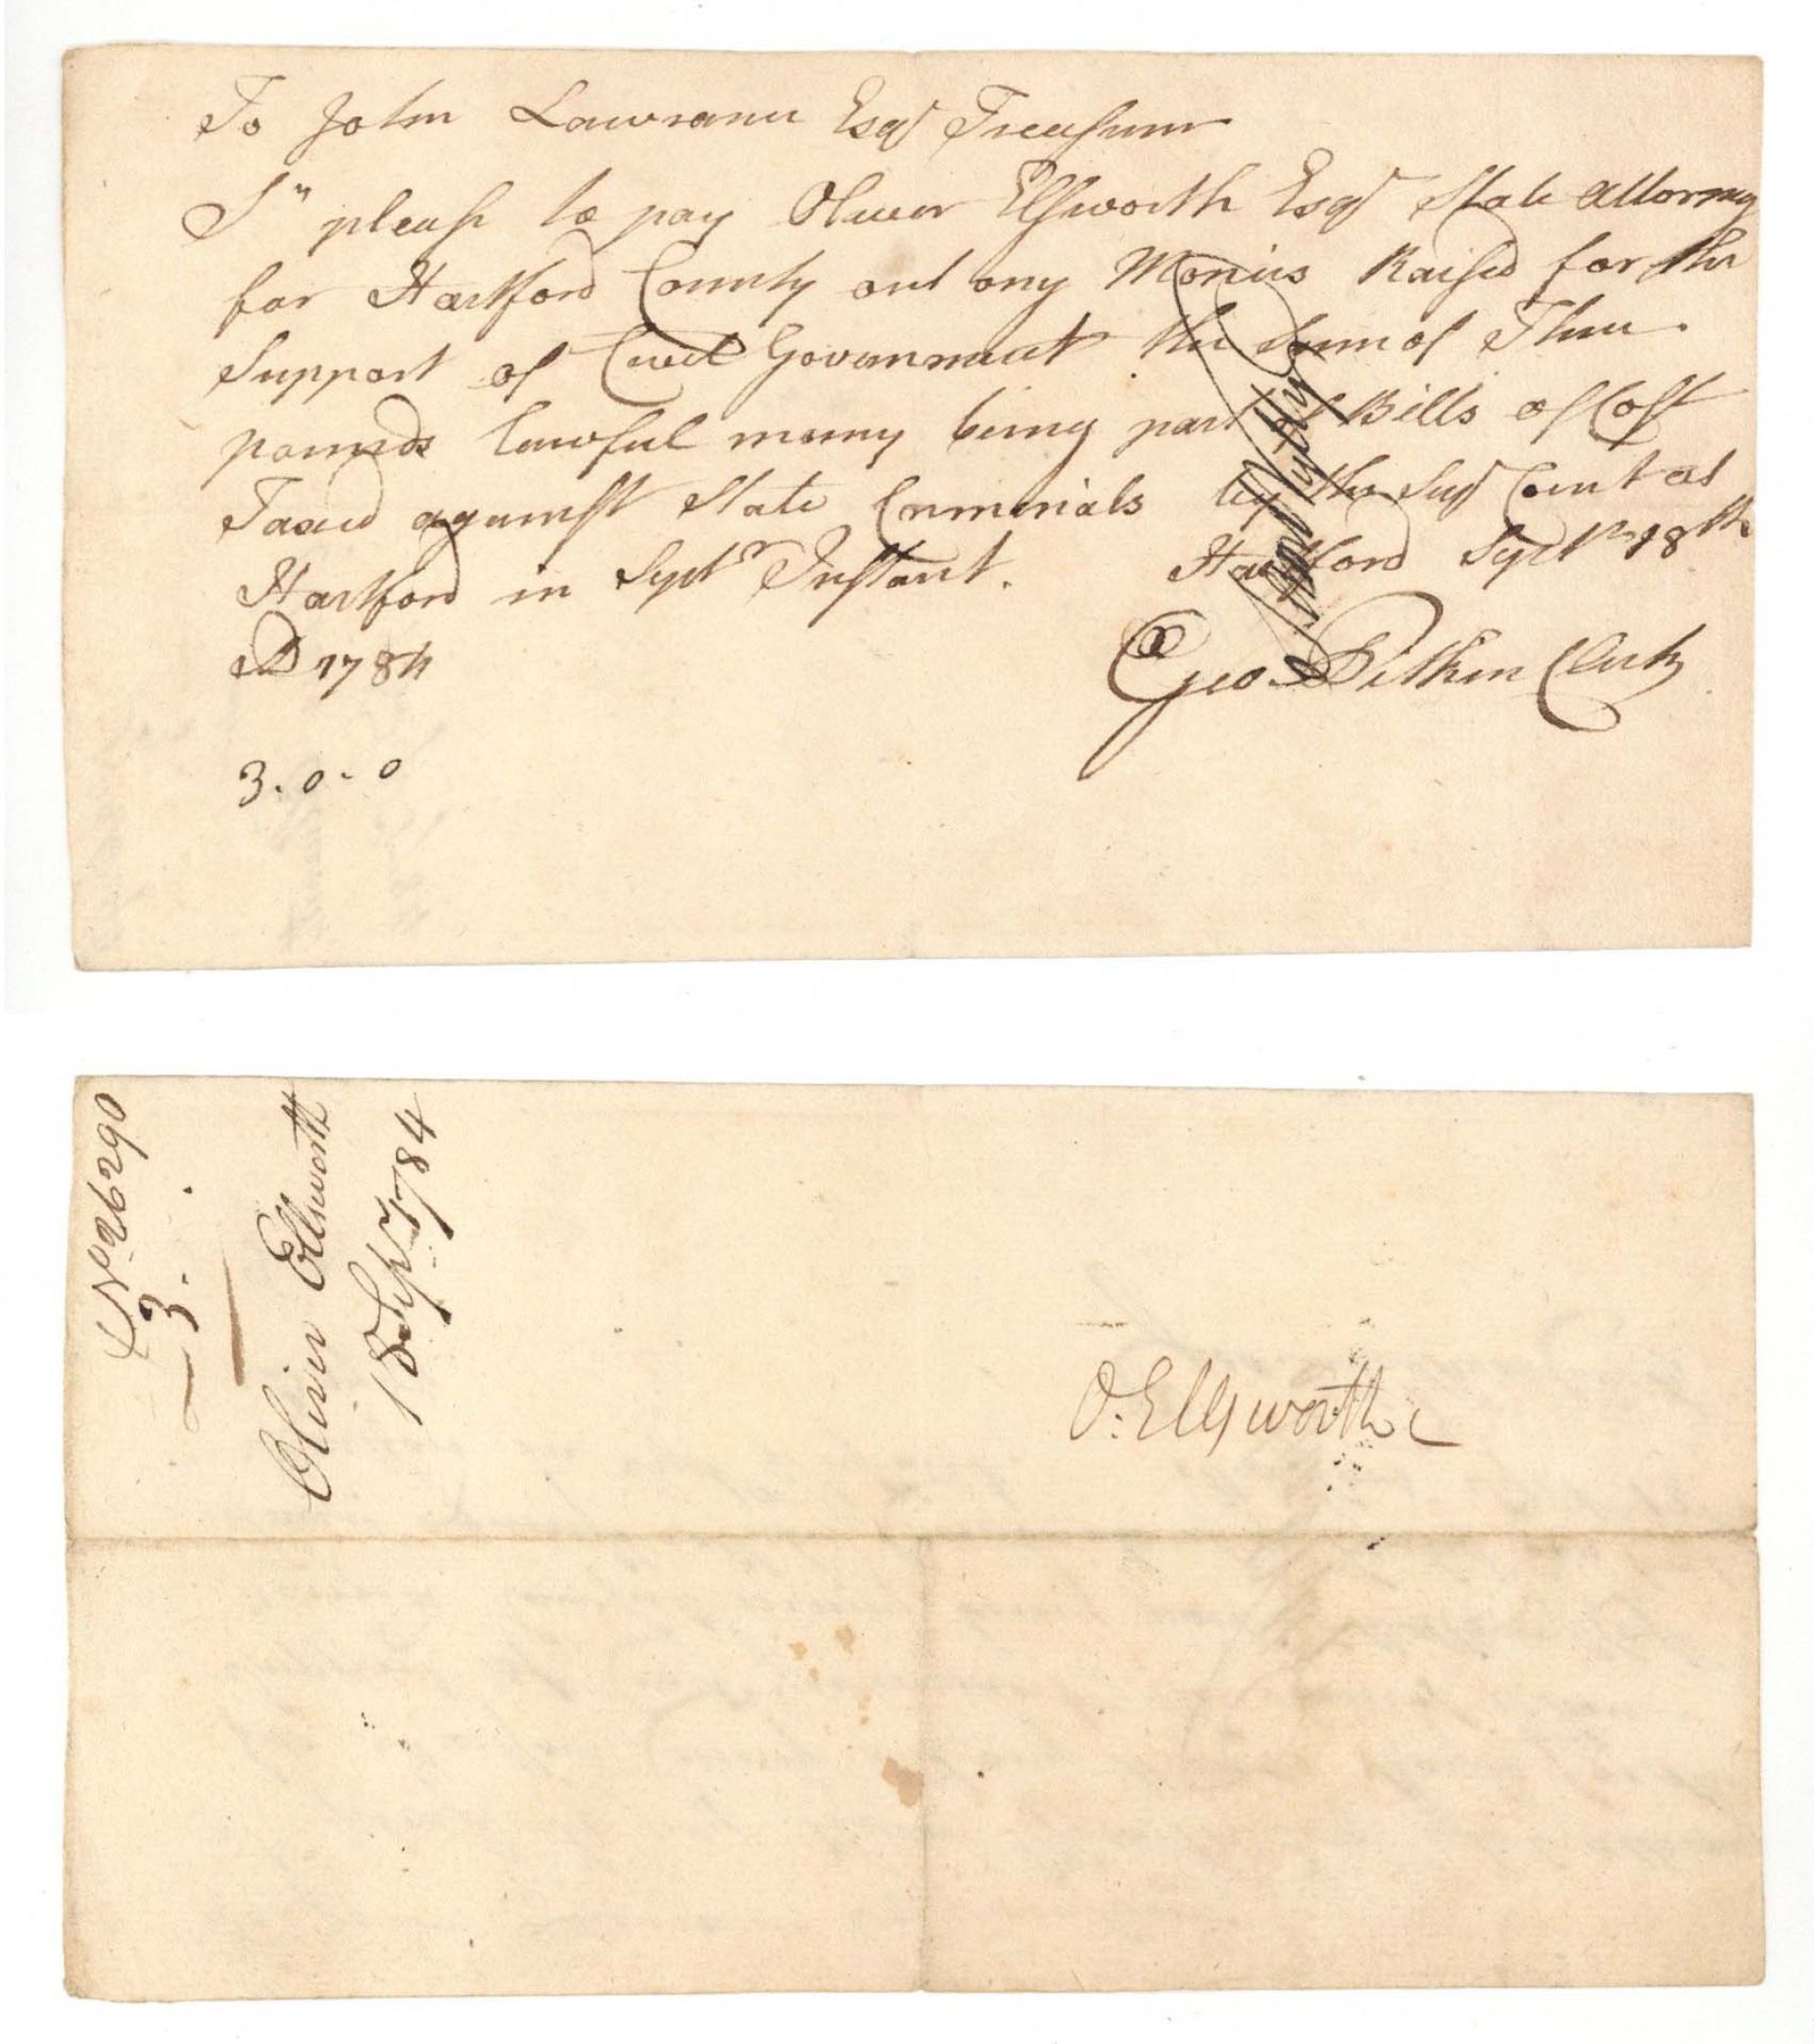 To John Lawrance Esqr Treasurer
Sr please to pay Oliver Ellsworth Esqr State Attorney
for Hartford County out any Monies Raised for the
Support of Civil Government the Sum of Three
pounds lawful money being part of Bills of Cost
Taxed against State Criminals by the Supr Court at
Hartford in Septr Instant. Hartford Septr 18th
AD 1784
Geo. Pitkin Clerk
3. 0. - 0
No 26290
3.
Oliver Ellsworth
18 Sept 1784
O. Ellsworth